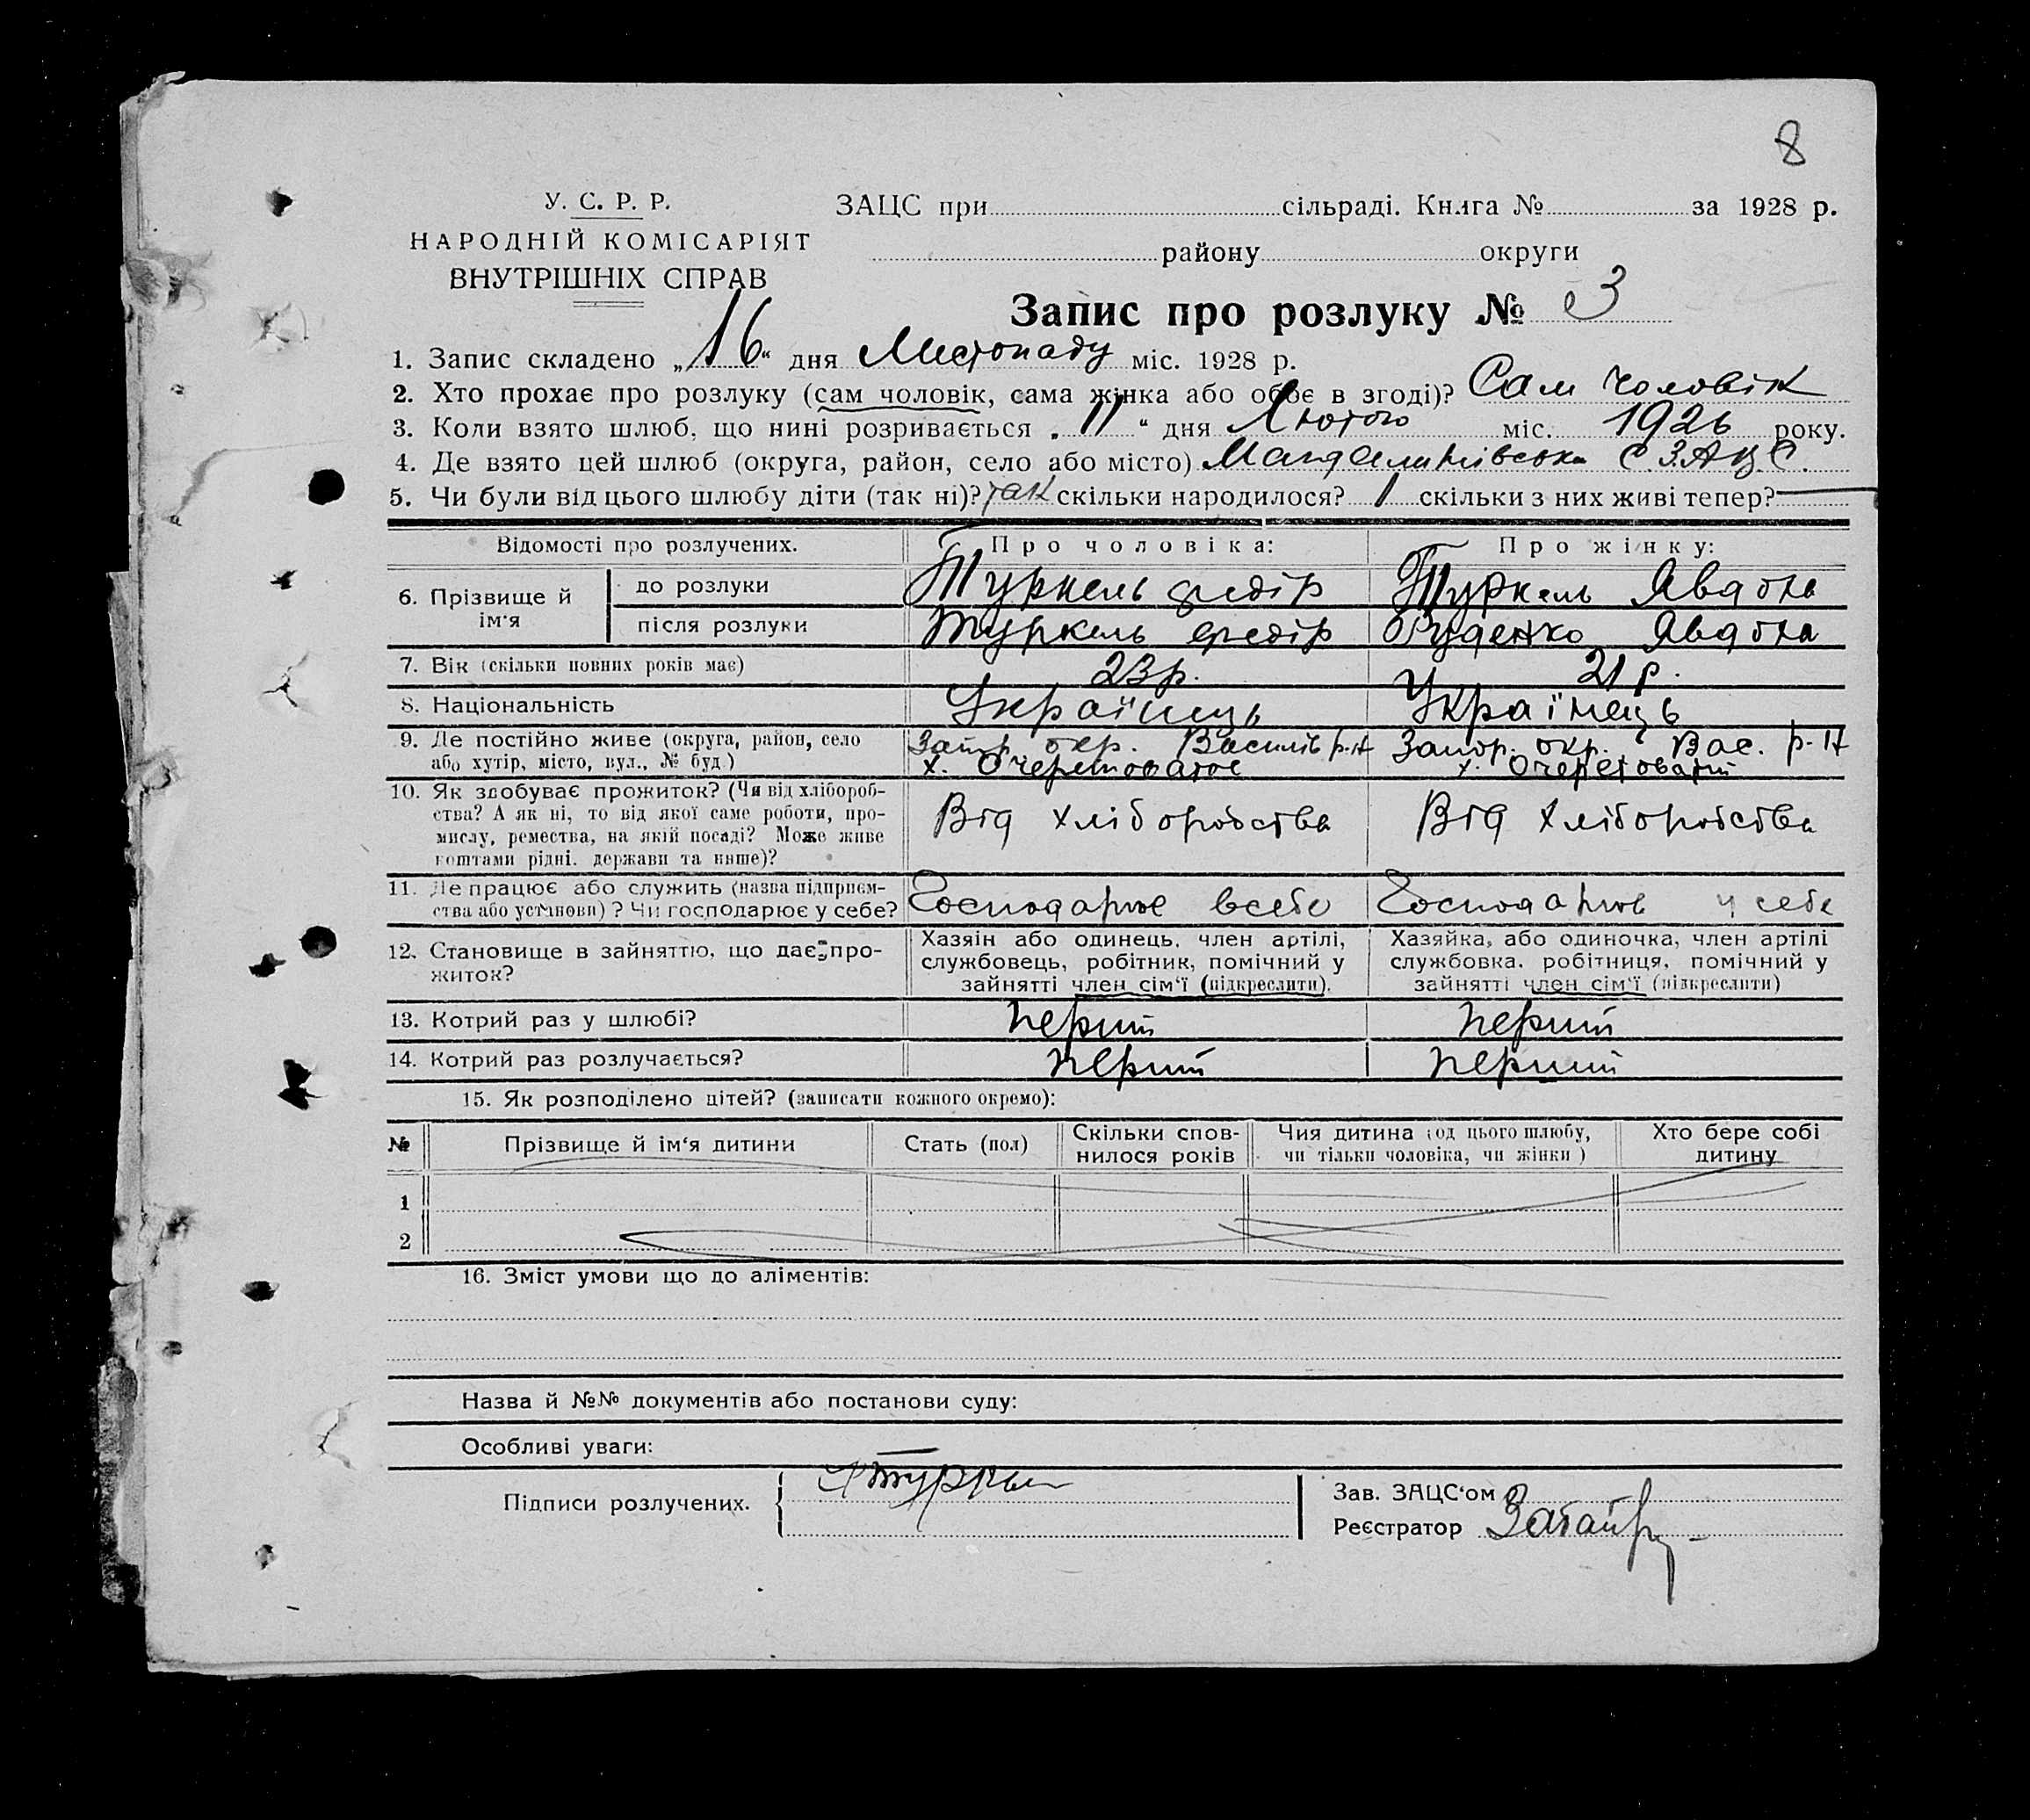 8
У. С. Р. Р.
НАРОДНІЙ КОМІСАРІЯТ
ВНУТРІШНІХ СПРАВ
ЗАЦС при сільраді. Книга № за 1928 р.
району округи
Запис про розлуку № 3
1. Запис складено „16“ дня Листопаду міс. 1928 р.
2. Хто прохає про розлуку (сам чоловік, сама жінка або обоє в згоді)? Сам чоловік
3. Коли взято шлюб, що нині розривається „11“ дня Лютого міс. 1926 року.
4. Де взято цей шлюб (округа, район, село або місто) Магдалинівська С.З.А.Ц.С.
5. Чи були від цього шлюбу діти (так ні)? так скільки народилося? 1 скільки з них живі тепер? —
Відомості про розлучених. Про чоловіка: Про жінку:
6. Прізвище й ім'я
до розлуки Туркель Федір Туркель Явдоха
після розлуки Туркель Федір Руденко Явдоха
7. Вік (скільки повних років має) 23 р. 21 р.
8. Національність Українець Українець
9. Де постійно живе (округа, район, село або хутір, місто, вул., № буд.)
Запор. окр. Василів р-н Запор. окр. Вас. р-н
х. Очеретоватое х. Очеретоватий
10. Як здобуває прожиток? (Чи від хлібороб-
ства? А як ні, то від якої саме роботи, про-
мислу, ремества, на якій посаді? Може живе
коштами рідні, держави та инше)?
Від хліборобства Від хліборобства
11. Де працює або служить (назва підприєм-
ства або установи)? Чи господарює у себе? Господарює всебе Господарює у себе
12. Становище в зайняттю, що дає про-
житок?
Хазяін або одинець, член артілі,
службовець, робітник, помічний у
зайнятті член сім'ї (підкреслити).
Хазяйка, або одиночка, член артілі
службовка, робітниця, помічний у
зайнятті член сім'ї (підкреслити)
13. Котрий раз у шлюбі? перший перший
14. Котрий раз розлучається? перший перший
15. Як розподілено дітей? (записати кожного окремо):
№ Прізвище й ім'я дитини Стать (пол) Скільки спов-
нилося років Чия дитина (од цього шлюбу,
чи тільки чоловіка, чи жінки) Хто бере собі
дитину
1
2
16. Зміст умови що до аліментів:
Назва й №№ документів або постанови суду:
Особливі уваги:
Підписи розлучених.
Зав. ЗАЦС'ом
Реєстратор